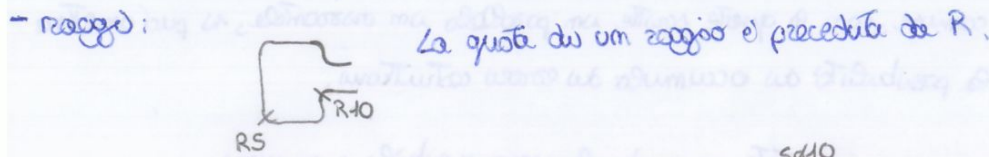 - raggi:
La quota di un raggio è preceduta da R.
R10
R5